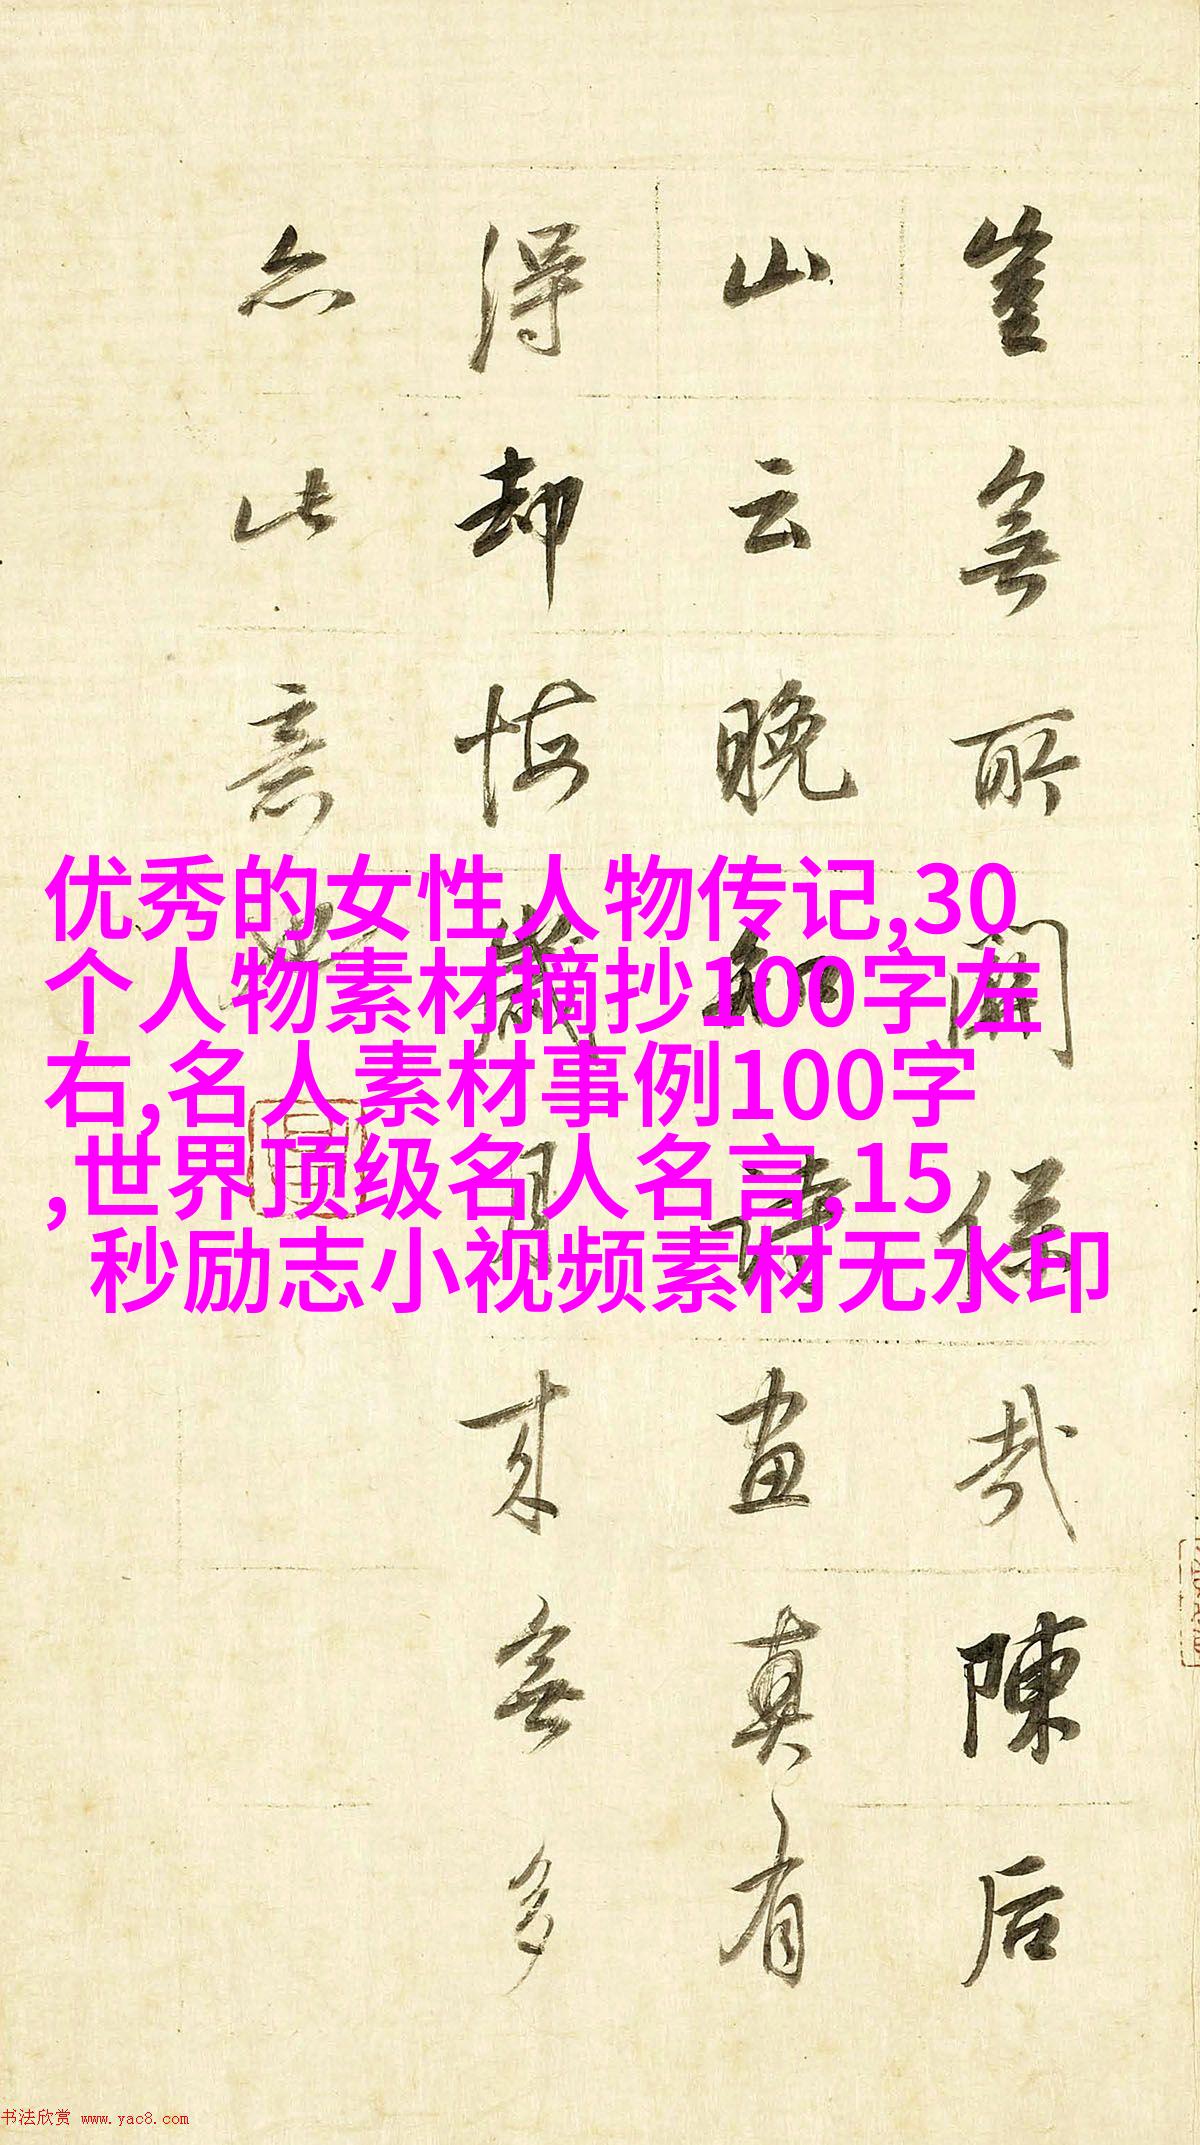 岂無所關係哉陳后
山云晚知詩畫真有
得却悔歲月来無多
亦此意
优秀的女性人物传记,30
个人物素材摘抄100字左
右,名人素材事例100字
,世界顶级名人名言,15
秒励志小视频素材无水印
书法欣赏 www.yac8.com